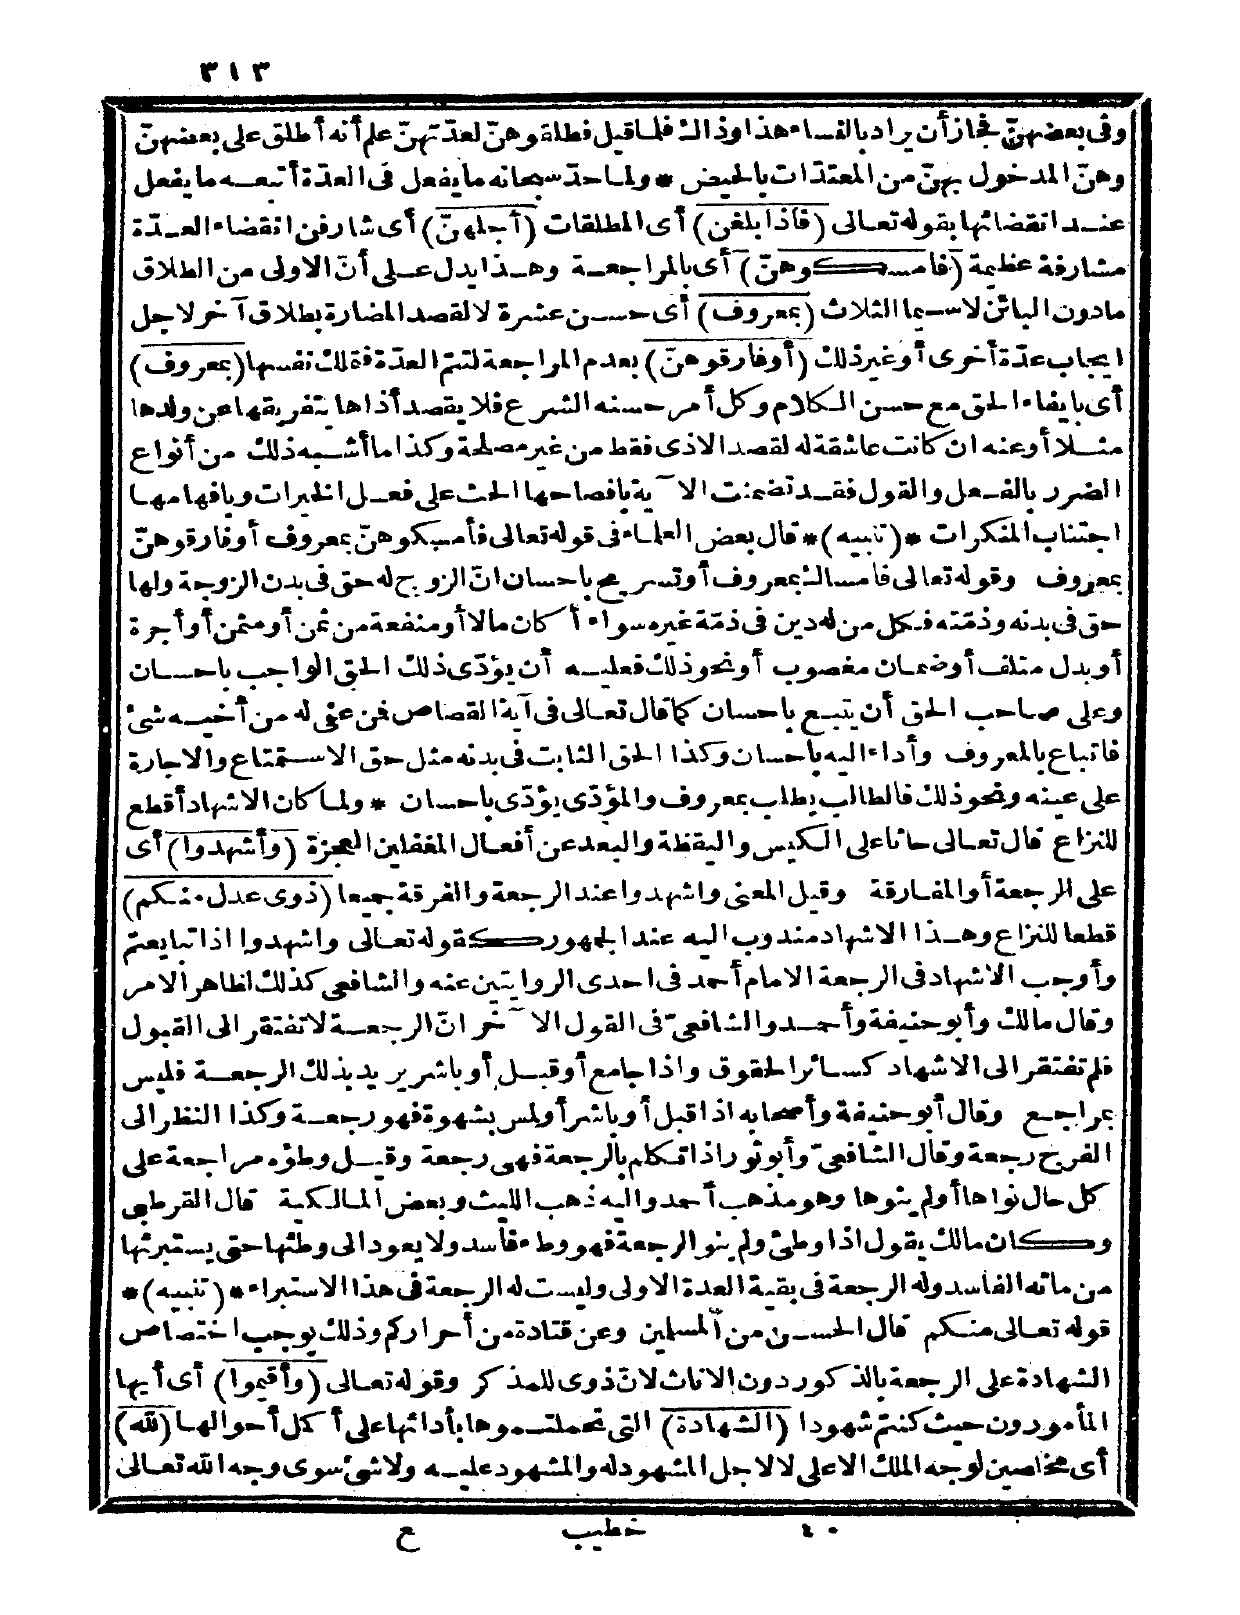 ٣١٣
وفى بعضهنّ فجاز أن يراد بالنساء هذا وذاك فلما قيل فطلقوهنّ لعدّتهنّ علم أنه أطلق على بعضهنّ
وهنّ المدخول بهنّ من المعتدّات بالحيض * ولما حدّ سبحانه ما يفعل فى العدّة أتبعه ما يفعل
عند انقضائها بقوله تعالى (فاذا بلغن) أى المطلقات (أجلهنّ) أى شارفن انقضاء العدّة
مشارفة عظيمة (فامسكوهنّ) أى بالمراجعة وهذا يدل على أنّ الاولى من الطلاق
مادون البائن لاسيما الثلاث (بمعروف) أى حسن عشرة لا لقصد المضارة بطلاق آخر لاجل
ايجاب عدّة أخرى أو غير ذلك (أو فارقوهنّ) بعدم المراجعة لتتمّ العدّة فتملك نفسها (بمعروف)
أى بايفاء الحق مع حسن الكلام وكل أمر حسنه الشرع فلا يقصد أذاها بتفريقها عن ولدها
مثلا أو عنه ان كانت عاشقة له لقصد الاذى فقط من غير مصلحة وكذا ما أشبه ذلك من أنواع
الضرر بالفعل والقول فقد تضمنت الآية بافصاحها الحث على فعل الخيرات وبافهامها
اجتناب المنكرات * (تنبيه) * قال بعض العلماء فى قوله تعالى فأمسكوهنّ بمعروف أو فارقوهنّ
بمعروف وقوله تعالى فامساك بمعروف أو تسريح باحسان انّ الزوج له حق فى بدن الزوجة ولها
حق فى بدنه وذمّته فكل من له دين فى ذمّة غيره سواء أكان مالا أو منفعة من ثمن أو مثمن أو أجرة
أو بدل متلف أو ضمان مغصوب أو نحو ذلك فعليه أن يؤدّى ذلك الحق الواجب باحسان
وعلى صاحب الحق أن يتبع باحسان كما قال تعالى فى آية القصاص فمن عفى له من أخيه شئ
فاتباع بالمعروف وأداء اليه باحسان وكذا الحق الثابت فى بدنه مثل حق الاستمتاع والاجارة
على عينه ونحو ذلك فالطالب يطلب بمعروف والمؤدّى يؤدّى باحسان * ولما كان الاشهاد أقطع
للنزاع قال تعالى حاثا على الكيس واليقظة والبعد عن أفعال المغفلين العجزة (وأشهدوا) أى
على الرجعة أو المفارقة وقيل المعنى واشهدوا عند الرجعة والفرقة جميعا (ذوى عدل منكم)
قطعا للنزاع وهذا الاشهاد مندوب اليه عند الجمهور كقوله تعالى واشهدوا اذا تبايعتم
وأوجب الاشهاد فى الرجعة الامام أحمد فى احدى الروايتين عنه والشافعى كذلك لظاهر الامر
وقال مالك وأبو حنيفة وأحمد والشافعىّ فى القول الآخر انّ الرجعة لا تفتقر الى القبول
فلم تفتقر الى الاشهاد كسائر الحقوق واذا جامع أو قبل أو باشر يريد بذلك الرجعة فليس
بمراجع وقال أبو حنيفة وأصحابه اذا قبل أو باشر أو لمس بشهوة فهو رجعة وكذا النظر الى
الفرج رجعة وقال الشافعىّ وأبو ثور اذا تكلم بالرجعة فهى رجعة وقيل وطؤه مراجعة على
كل حال نواها أو لم ينوها وهو مذهب أحمد واليه ذهب الليث وبعض المالكية قال القرطبى
وكان مالك يقول اذا وطئ ولم ينو الرجعة فهو وطء فاسد ولا يعود الى وطئها حتى يستبرئها
من مائه الفاسد وله الرجعة فى بقية العدة الاولى وليست له الرجعة فى هذا الاستبراء * (تنبيه) *
قوله تعالى منكم قال الحسن من المسلمين وعن قتادة من أحراركم وذلك يوجب اختصاص
الشهادة على الرجعة بالذكور دون الاناث لانّ ذوى للمذكر وقوله تعالى (وأقيموا) أى أيها
المأمورون حيث كنتم شهودا (الشهادة) التى تحملتموها بأدائها على أكل أحوالها (لله)
أى مخلصين لوجه الملك الاعلى لا لاجل المشهود له والمشهود عليه ولا شئ سوى وجه الله تعالى
٤٠ خطيب ع